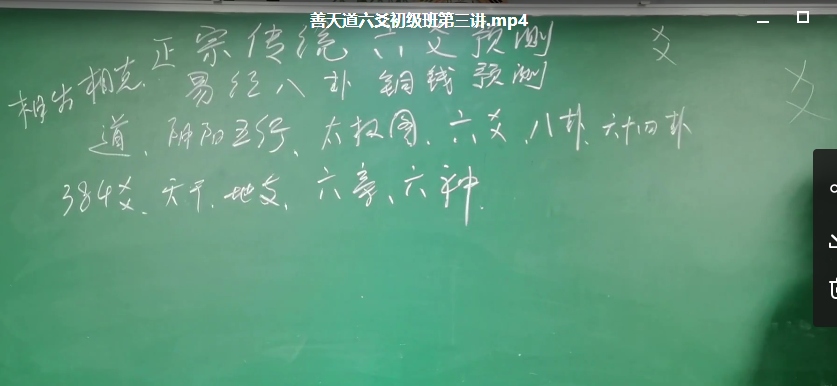 善天道六爻初级班第三讲.mp4
正宗传统六爻预测 爻
相生相克 易经八卦铜钱预测 爻
道、阴阳五行、太极图、六爻、八卦、六十四卦
384爻、天干、地支、六亲、六神.